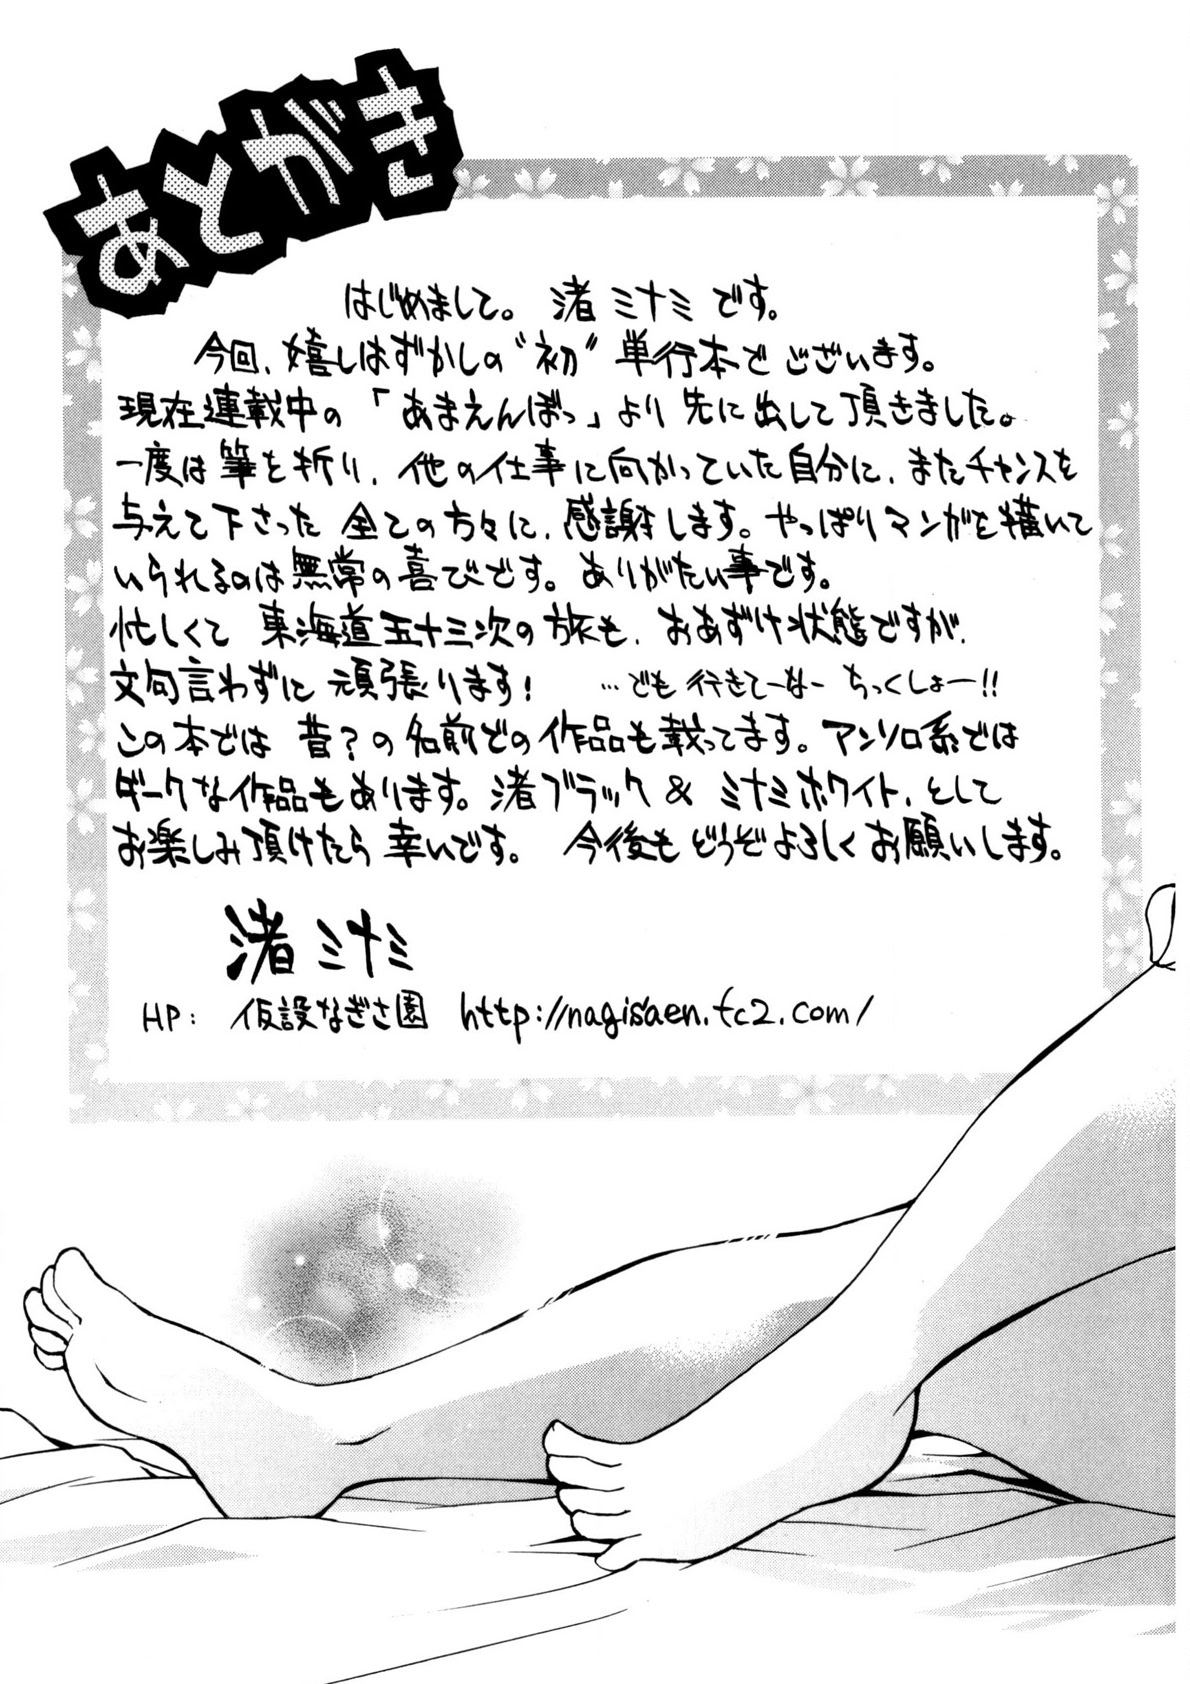 あとがき
はじめまして。 渚 ミナミ です。
今回、嬉しはずかしの"初" 単行本で ございます。
現在連載中の 「あまえんぼっ」より 先に 出して頂きました。
一度は 筆を折り、他の仕事に向かっていた自分に、またチャンスを
与えて下さった 全ての方々に、感謝します。やっぱりマンガを描いて
いられるのは無常の喜びです。ありがたい事です。
忙しくて 東海道五十三次の旅も、おあずけ状態ですが、
文句言わずに頑張ります! …でも 行きてーなー ちっくしょー!!
この本では 昔?の名前での作品も載ってます。アンソロ系では
ダークな作品もあります。渚ブラック & ミナミホワイト、として
お楽しみ頂けたら 幸いです。 今後もどうぞよろしくお願いします。
渚 ミナミ
HP: 仮設なぎさ園 http://nagisaen.fc2.com/